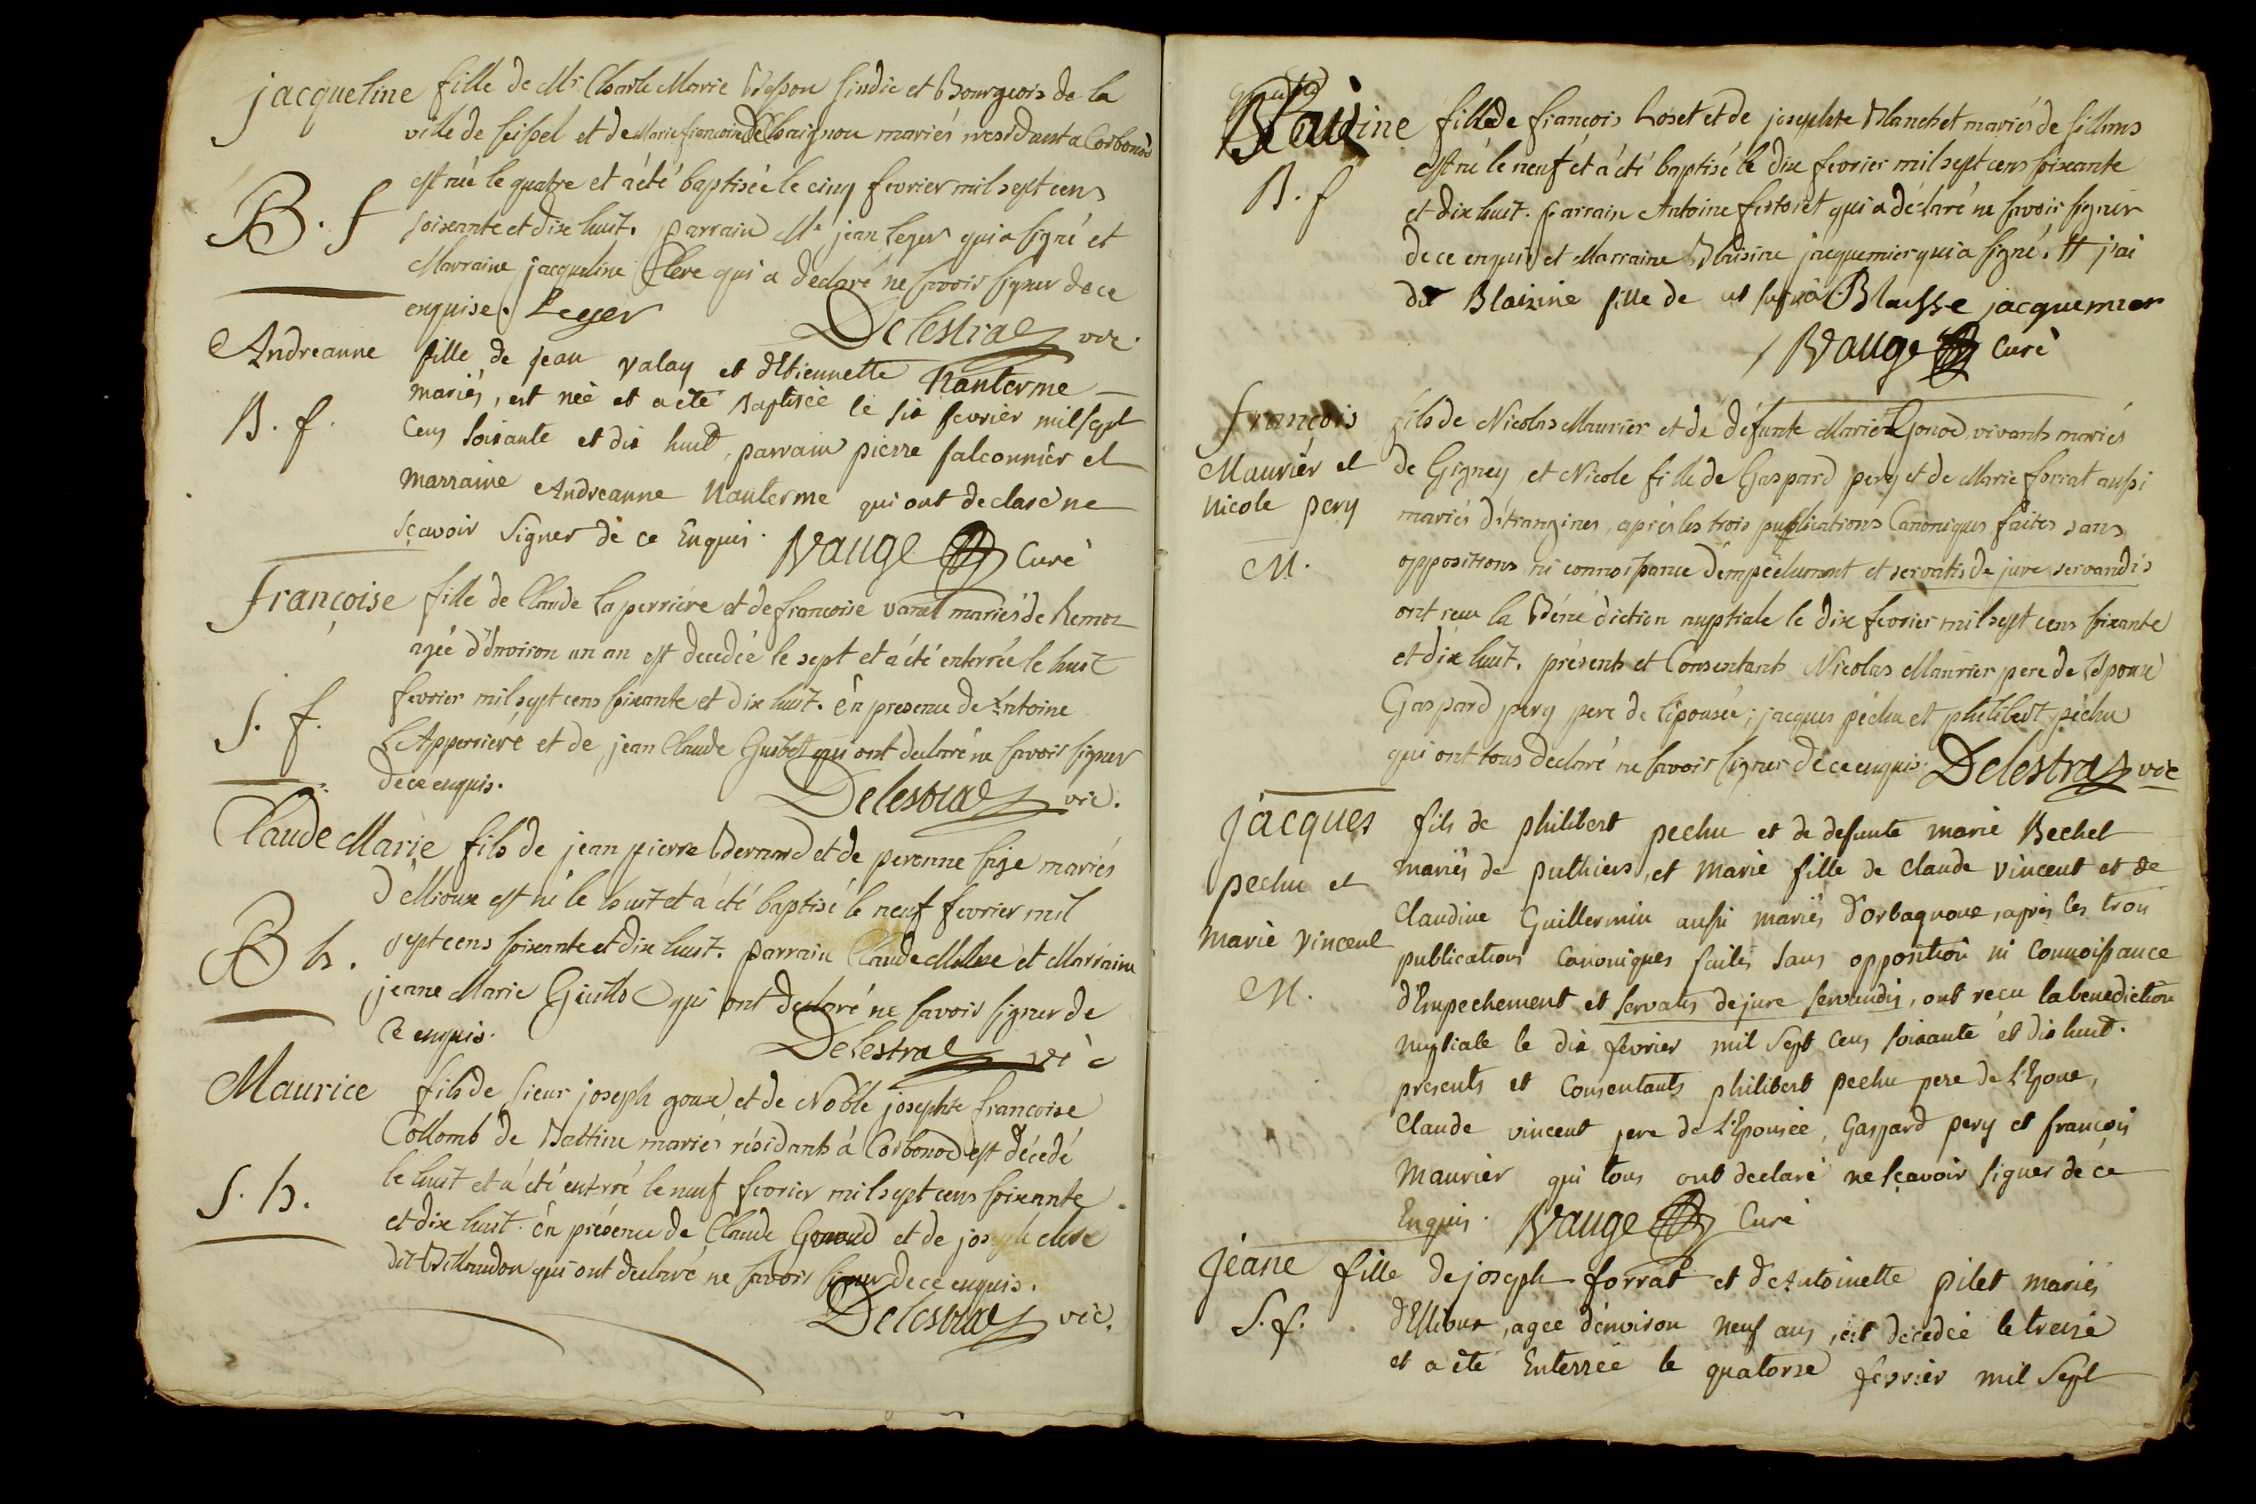 jacqueline fille de Mr. Charle Marie sindic et Bourgeois de la
ville de seissel et de Marie francoise De mariés residants a Corbonod
est née le quatre et a été baptisée le cinq fevrier mil sept cens
B. f
soixante et dix huit. parrain Mr. jean Leger qui a signé et
Marraine jacqueline Clerc qui a declaré ne savoir signer de ce
enquise. Leger Delestraz vic.
Andreanne fille de jean valay et d'Etiennette Nanterme
B. f.
mariés, est née et a été Baptisée le six fevrier mil sept
Cens soixante et dix huit, parrain pierre falconnier et
marraine Andreanne Nanterme qui ont declaré ne
sçavoir signer de ce Enquis. Vauge Curé
françoise fille de Claude Laperriere et de francoise mariés de Remoz
agée d'Environ un an est decedée le sept et a été enterrée le huit
S. f.
fevrier mil sept cens soixante et dix huit. En presence de Antoine
LApperriere et de jean Claude qui ont declaré ne savoir signer
de ce enquis. Delestraz vic.
Claude Marie fils de jean pierre Bernard et de peronne mariés
est né le huit et a été baptisé le neuf fevrier mil
B h.
sept cens soixante et dix huit. parrain Claude et Marraine
jeanne Marie qui ont declaré ne savoir signer de
Ce enquis. Delestraz vic
Maurice fils de sieur joseph goux et de Noble josephte francoise
Collomb de Battine mariés résidants à Corbonod est décédé
S. h.
le huit et a été enterré le neuf fevrier mil sept cens soixante
et dix huit. En présence de Claude et de joseph clerc
dit qui ont declaré ne savoir signer de ce enquis.
Delestraz vic.
Blaizine fille de francois Roset et de josephte Blanchet mariés de sillans
B. f
est né le neuf et a été baptisé le dix fevrier mil sept cens soixante
et dix huit. parrain Antoine qui a déclaré ne savoir signer
de ce enquis et Marraine Blaisine jacquemier qui a signé. # j'ai
dit Blaizine fille de Blaisse jacquemier
Vauge Curé
françois
Maurier et
nicole pery
M.
fils de Nicolas Maurier et de défunte Marie Gonod vivants mariés
de Gigney, et Nicole fille de Gaspard pery et de Marie forrat aussi
mariés d'étranginer, après les trois publications Canoniques faites sans
oppositions ni connoissance d'empeechement et servatis de jure servandis
ont reçu la Béné diction nuptiale le dix fevrier mil sept cens soixante
et dix huit. présents et Consentants Nicolas Maurier pere de L'Epoux
Gaspard pery pere de l'épousée, jacques péchu et philibert péchu
qui ont tous declaré ne savoir signer de ce enquis. Delestraz vic
jacques
pechu et
marie vincent
M.
fils de philibert pechu et de defunte marie Bechet
mariés de puthiers, et Marie fille de Claude vincent et de
Claudine Guillermin aussi mariés d'orbagnoux, après les trois
publications Canoniques faites sans opposition ni Connoissance
d'Empechement et servatis de jure servandis, ont recu la benediction
nuptiale le dix fevrier mil Sept Cens soixante et dix huit.
presents et Consentants philibert pechu pere de L'Epoux,
Claude vincent pere de L'Epousée, Gaspard pery et françois
Maurier qui tous ont declaré ne sçavoir signer de ce
Enquis. Vauge Curé
jeane fille de joseph forrat et de Antoinette pilet mariés
S. f.
agée d'environ neuf ans, est décedée le treize
et a été Enterrée le quatorze fevrier mil Sept